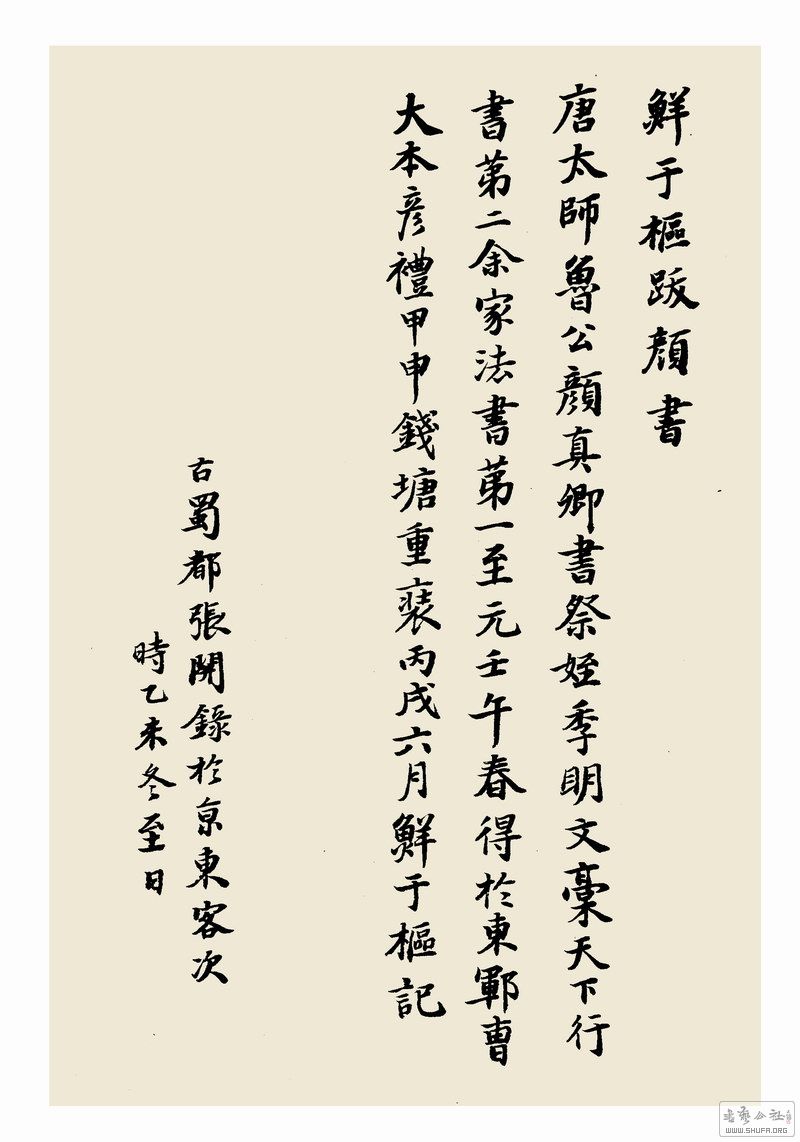 鮮于樞跋顔書
唐太師魯公顔真卿書祭姪季明文稾天下行
書第二余家法書第一至元壬午春得於東鄆曹
大本彦禮甲申錢塘重裝丙戌六月鮮于樞記
古蜀都張開錄於京東客次
時乙未冬至日
書藝公社
WWW.SHUFA.ORG